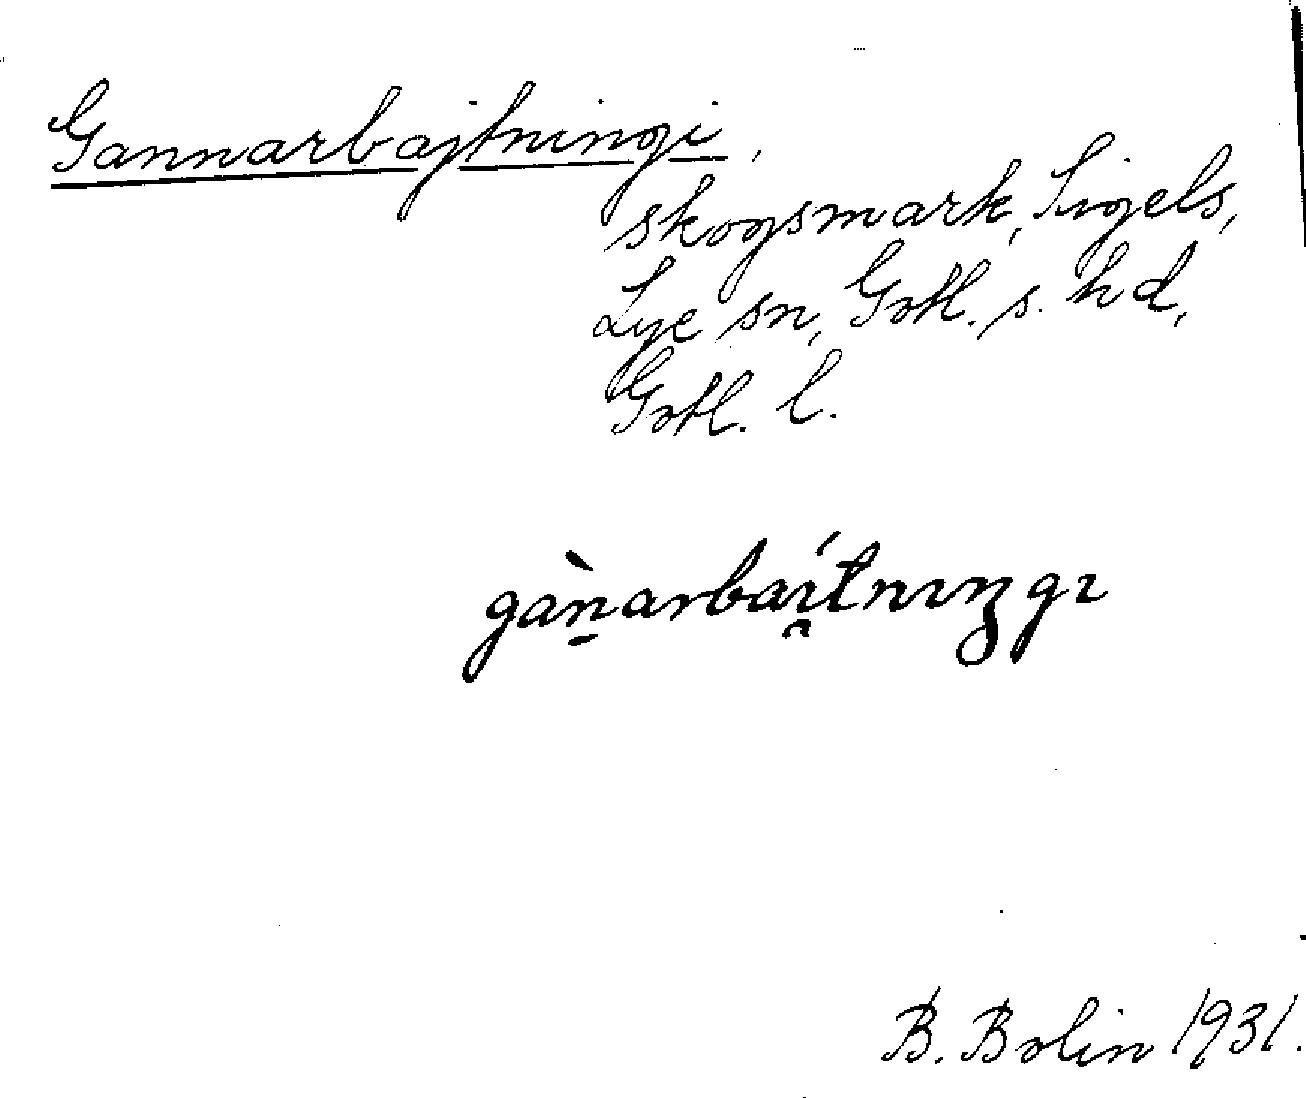 Gannarbajtningi,
skogsmark, Sigels,
Lye sn, Gotl. s. hd,
Gotl. l.
B. Bolin 1931.